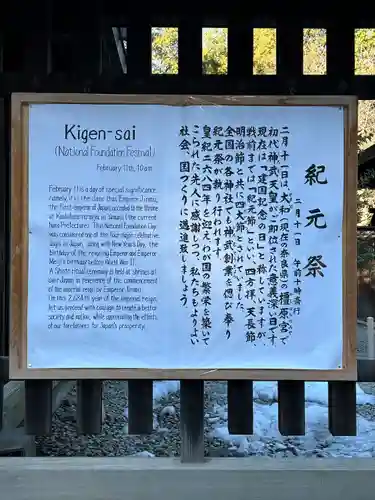 Kigen-sai
(National Foundation Festival)
February 11th, 10am
February 11 is a day of special significance
namely, it is the date that Emperor Jinmu,
the first emperor of Japan, acceded to the throne
at Kashiharanomiya in Yamato (the current
Nara Prefecture). This National Foundation Day
was considered one of the four major celebrative
days in Japan, along with New Year's Day, the
birthday of the reigning Emperor and Emperor
Meiji's birthday before World War II.
A Shinto ritual ceremony is held at shrines all
over Japan in reverence of the commencement
of the imperial reign by Emperor Jinmu.
On this 2,684th year of the imperial reign,
let us proceed with courage to create a better
society and nation, while appreciating the efforts
of our forefathers for Japan's prosperity.
紀元祭
二月十一日 午前十時斎行
二月十一日は、大和(現在の奈良県)の橿原宮で
初代神武天皇がご即位された意義深い日です。
現在は「建国記念の日」と称していますが、
戦前までは「紀元節」といい、四方拝、天長節、
明治節と共に四大節とされていました。
全国の各神社でも神武創業を偲び奉り
紀元祭が執り行われます。
皇紀二六八四年を迎え、わが国の繁栄を築いて
こられた先人に感謝して、私たちもよりよい
社会、国づくりに邁進致しましょう。